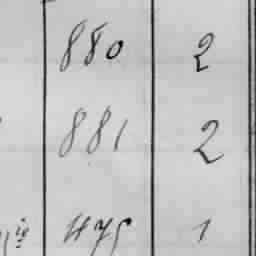 880 2
881 2
475 1